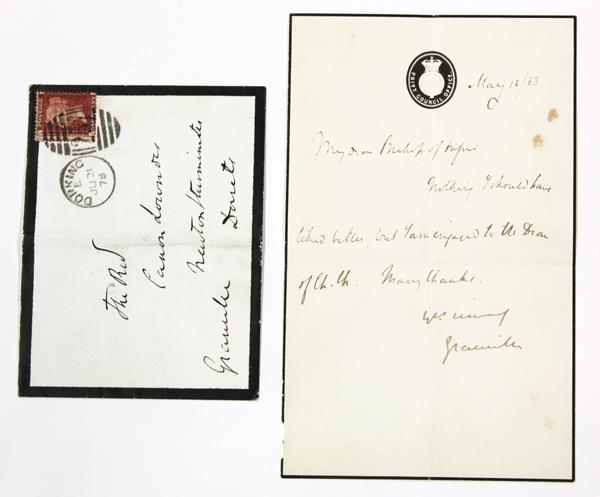 DORKING
E
JU 21
78
The Rev.
Canon Lowndes
Dorset
Granville
PRIVY COUNCIL OFFICE
May 18/63
My dear Bishop of
Nothing I should have
liked better, but I am engaged to the Dean
of Ch. Ch. Many thanks.
Granville